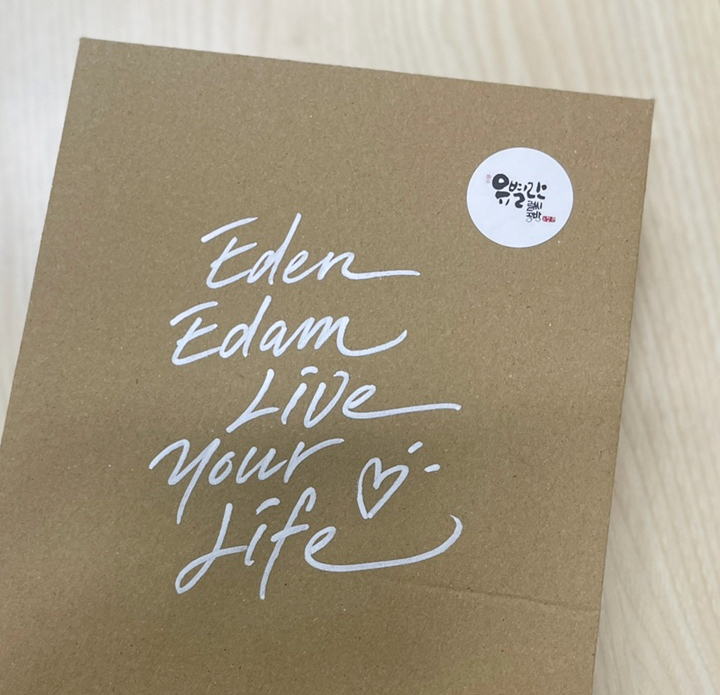 Eden
Edam
Live
your
Life
유별난
글씨
공방